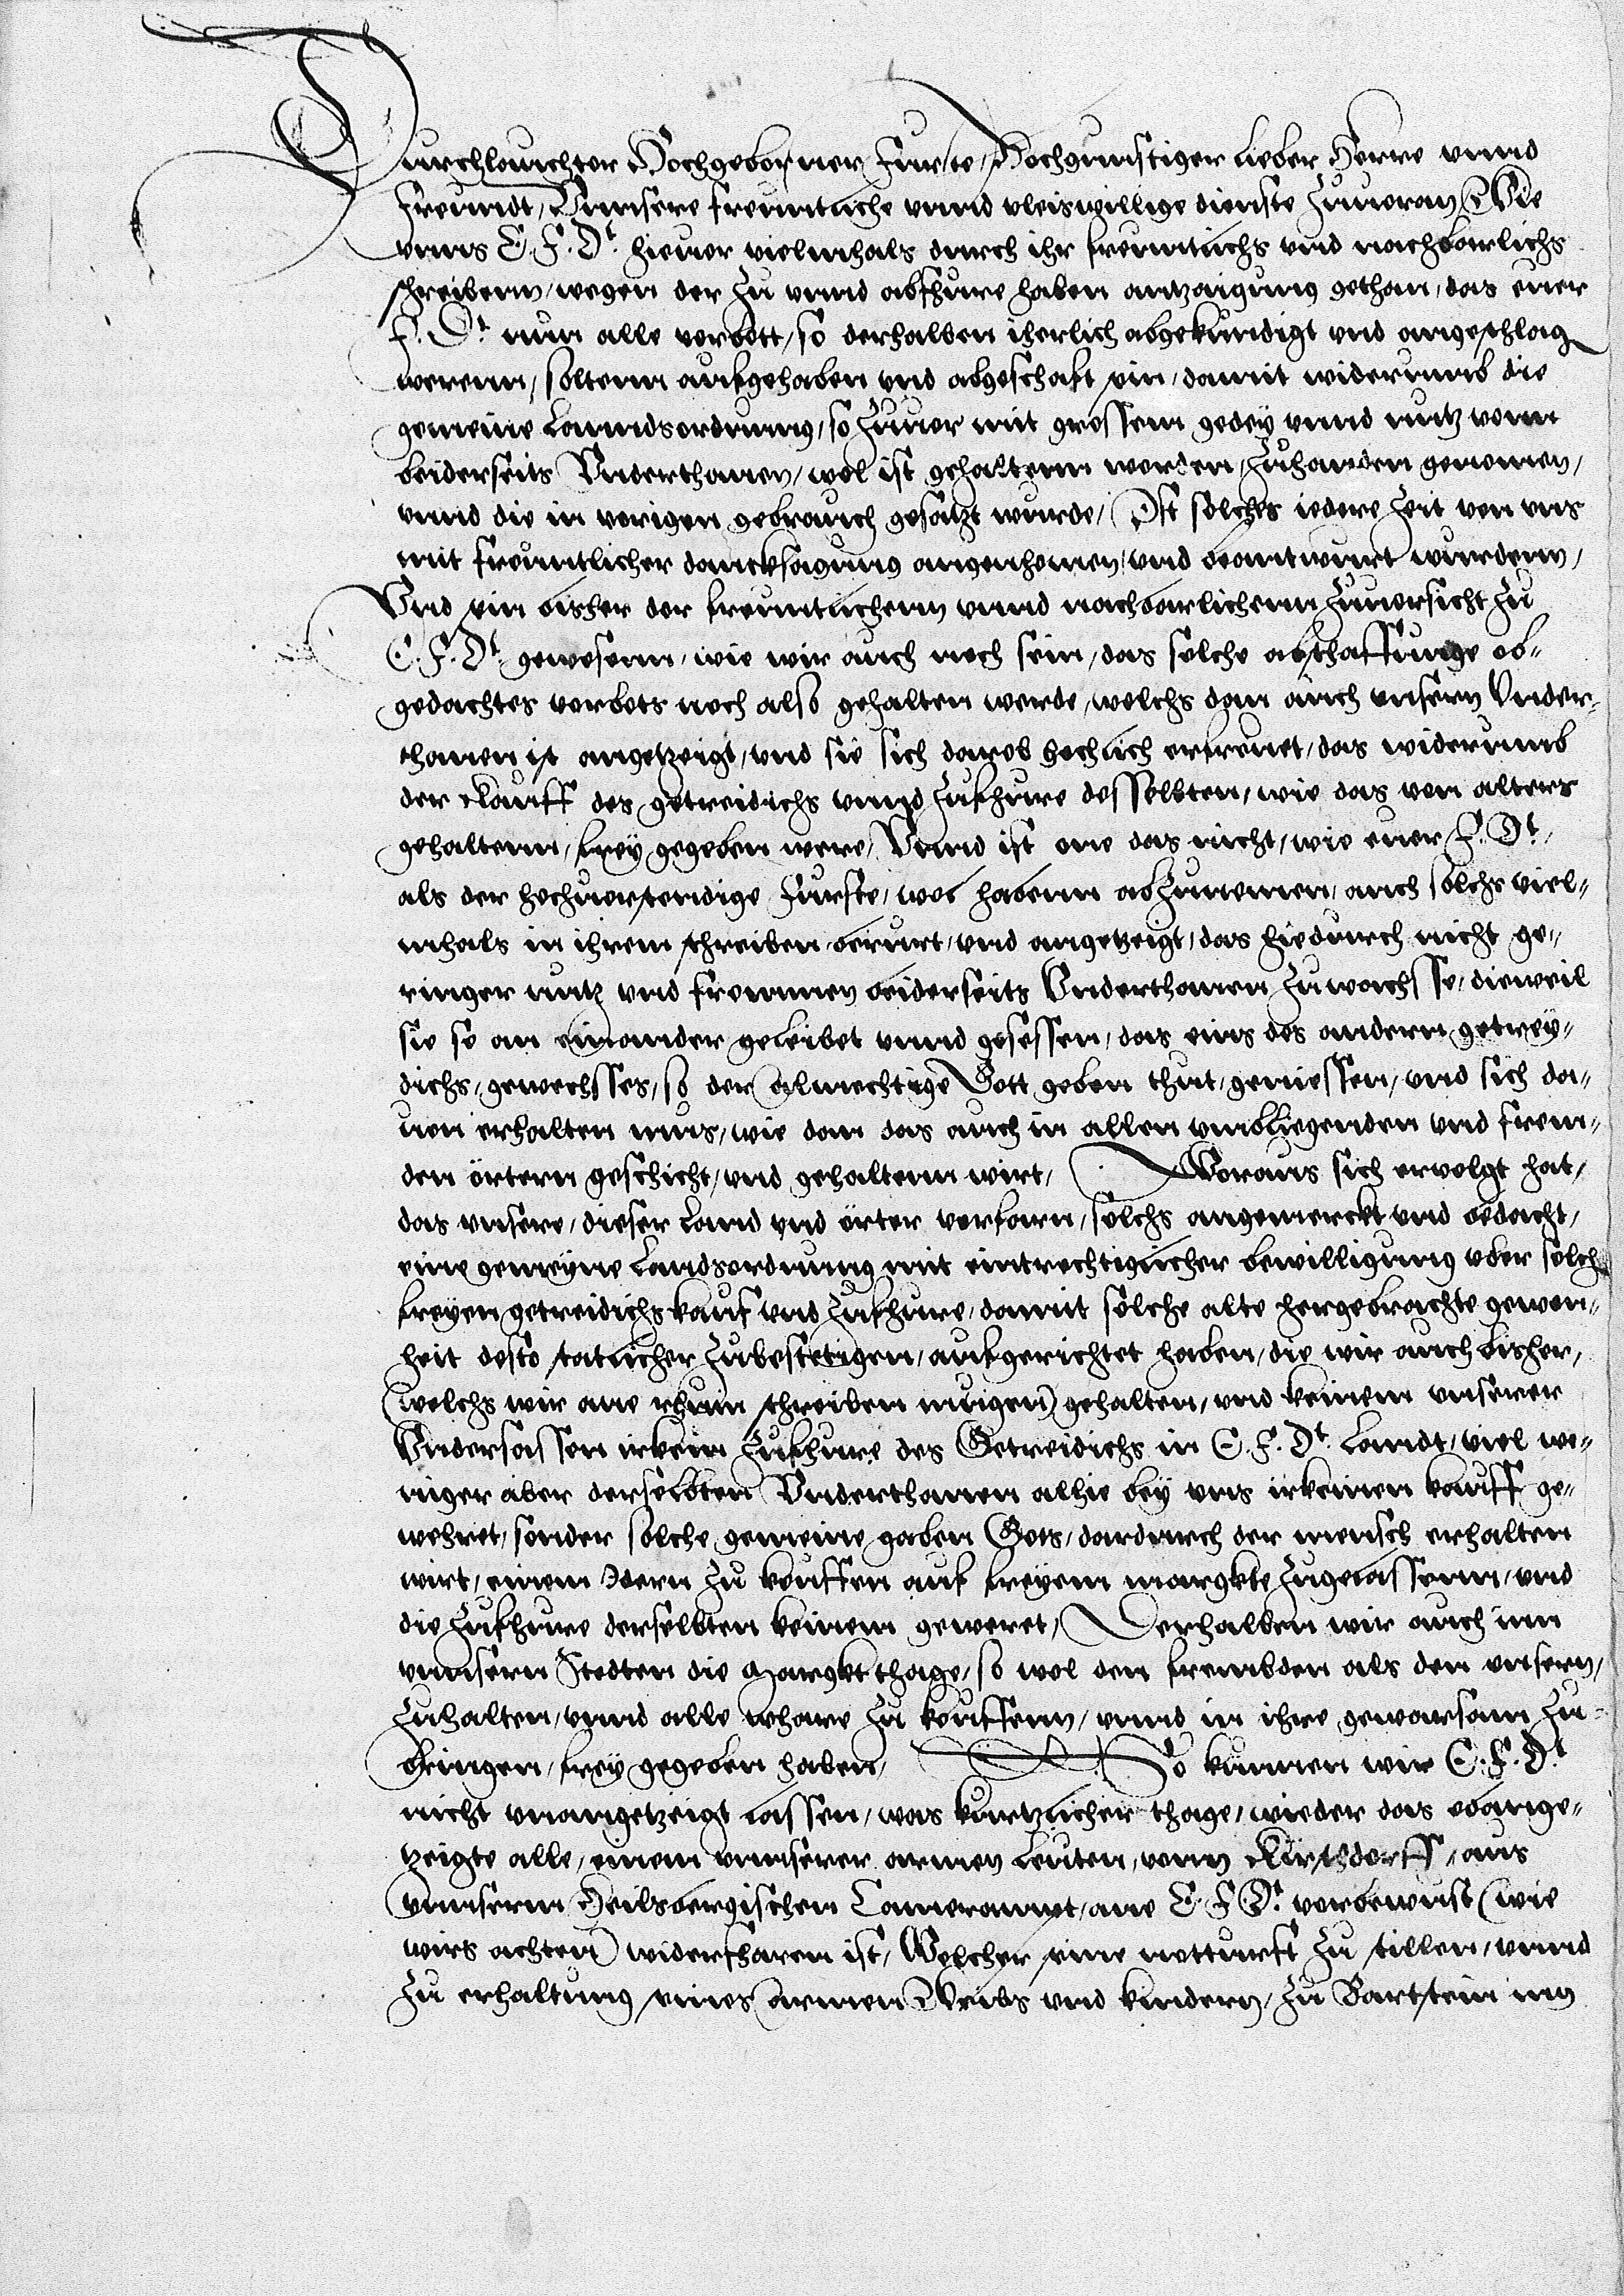 Durchlauchter Hochgeborner Furste, Hochgunstiger lieber Herre vnnd
Freundt, Vnnsere freuntliche vnnd vleiswillige dienste zuuoran, Wie
vnns E. F. Dt. hieuor vielmhals durch ihr freuntlichs vnd nachbarlichs
schreibenn, wegen der zu vnnd abfhure haben antzaigung gethan, das euer
F. Dt. nun alle verbott, so derhalben iherlich abgekundigt vnd angeschlag
werenn, soltenn aufgehaben vnd abgeschaft sein, damit widerumb die
gemeine Lanndsordnung, so zuuor mit grossem gedey vnnd nutz vonn
beiderseits Vnderthanen, wol ist gehaltenn worden, zuhanden genomen,
vnnd die in vorigen gebrauch gesatzt wurde, Ist solchs iedere zeit von vns
mit freuntlicher dancksagung angenhomen, vnd beantwurt wurdenn,
Vnd sein bisher der freuntlichenn vnnd nachbarlichenn zuuorsicht zu
E. F. Dt. gewesenn, wie wir auch noch sein, das solche abschaffunge ob-
gedachtes verbots noch also gehalten werde, welchs dan auch vnsern Vnder-
thanen ist angetzeigt, vnd sie sich darob hochlich erfreuet, das widerumb
der Kauff des getreidichs vnnd zufhure desselbten, wie das von alters
gehaltenn, frey gegeben were, Vnnd ist one das nicht, wie euer F. Dt.
als der hochuorstendige Furste, wol habenn abzunemen, auch solchs viel-
mhals in ihrem schreiben berurt, vnd angetzeigt, das hiedurch nicht ge-
ringer nutz vnd frommen beiderseits Vnderthanen zuwachsse, dieweil
sie so an einander geleibet vnnd gesessen, das eins des andern getrey-
dichs, gewechsses, so der Almechtige Gott geben thut, geniessen, vnd sich da-
uon erhalten mus, wie dan das auch in allen vmbliegenden vnd frem-
den örtern geschicht, vnd gehaltenn wirt, Woraus sich ervolgt hat,
das vnsere, dieser Land vnd örter vorfarn, solchs angemerckt vnd bedacht,
eine gemeyne Landsordnung mit eintrechtiglicher bewilligung vber solch
freyen getreidichs kauf vnd zufhure, damit solche alte hergebrachte gewon-
heit desto statlicher zubestetigen, aufgerichtet haben, die wir auch bisher,
(welchs wir ane rhum schreiben mugen) gehalten, vnd keinem vnserer
Vndersassen irkein zufhure des Getreidichs in E. F. Dt. Landt, viel we-
niger aber derselbten Vnderthanen alhie bey vns irkeinen kauff ge-
wehret, sonder solche gemeine gaben Gots, dardurch der mensch erhalten
wirt, einem Idern zu kouffen auf freyem margkte zugelassenn, vnd
die zufhure derselbten keinem geweret, Derhalben wir auch inn
vnnsern Stedten die Margktthage, so wol den frembden als den vnsern,
zuhalten, vnnd alle whare zu kouffenn, vnnd in ihre gewarsam zu-
bringen, frey gegeben haben, So kunnen wir E. F. Dt.
nicht vnangetzeigt lassen, was kurtzlicher thage, wieder das obange-
tzeigte alle, einem vnnserer armen leuten, vonn Kirsdorff, aus
vnnserm Heilsbergischen Cammerampt, ane E. F. Dt. vorbewust (wie
wirs achten) widerfharen ist, Welcher seine notturft zu stillen, vnnd
zu erhaltung seines armen Weibs vnd kindern, zu Bartstein inn